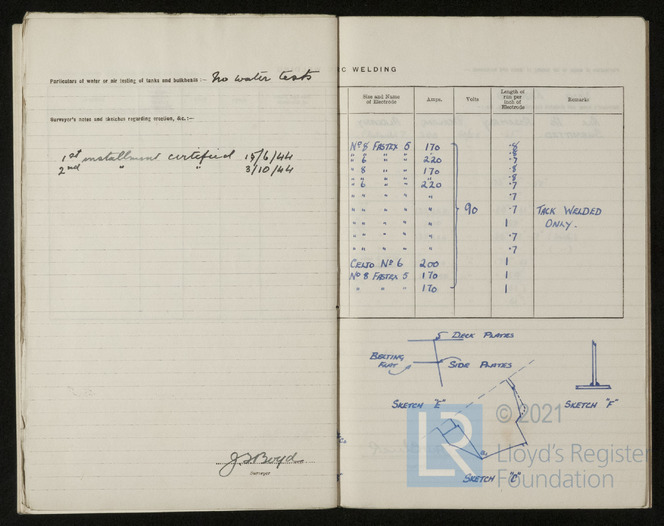 Particulars of water or air testing of tanks and bulkheads :— No water tests
Surveyor's notes and sketches regarding erection, &c. :—
1st installment certified 15/6/44
2nd " " 3/10/44
J S Boyd
Surveyor
IC WELDING
Size and Name of Electrode Amps. Volts Length of run per inch of Electrode Remarks
Nº 8 FASTEX 5 170 .8
" " " " .8
" 6 " " 220 .7
" 8 " " 170 .8
" " " " " .8
" 6 " " 220 .7
" " " " " .7
" " " " " 90 .7 TACK WELDED
" " " " " 1 ONLY.
" " " " " .7
" " " " " .7
CELTO Nº 6 200 1
Nº 8 FASTEX 5 170 1
" " " 170 1
DECK PLATES
BELTING FLAT
SIDE PLATES
SKETCH "E"
SKETCH "F"
SKETCH "C"
© 2021
LR
Lloyd's Register
Foundation